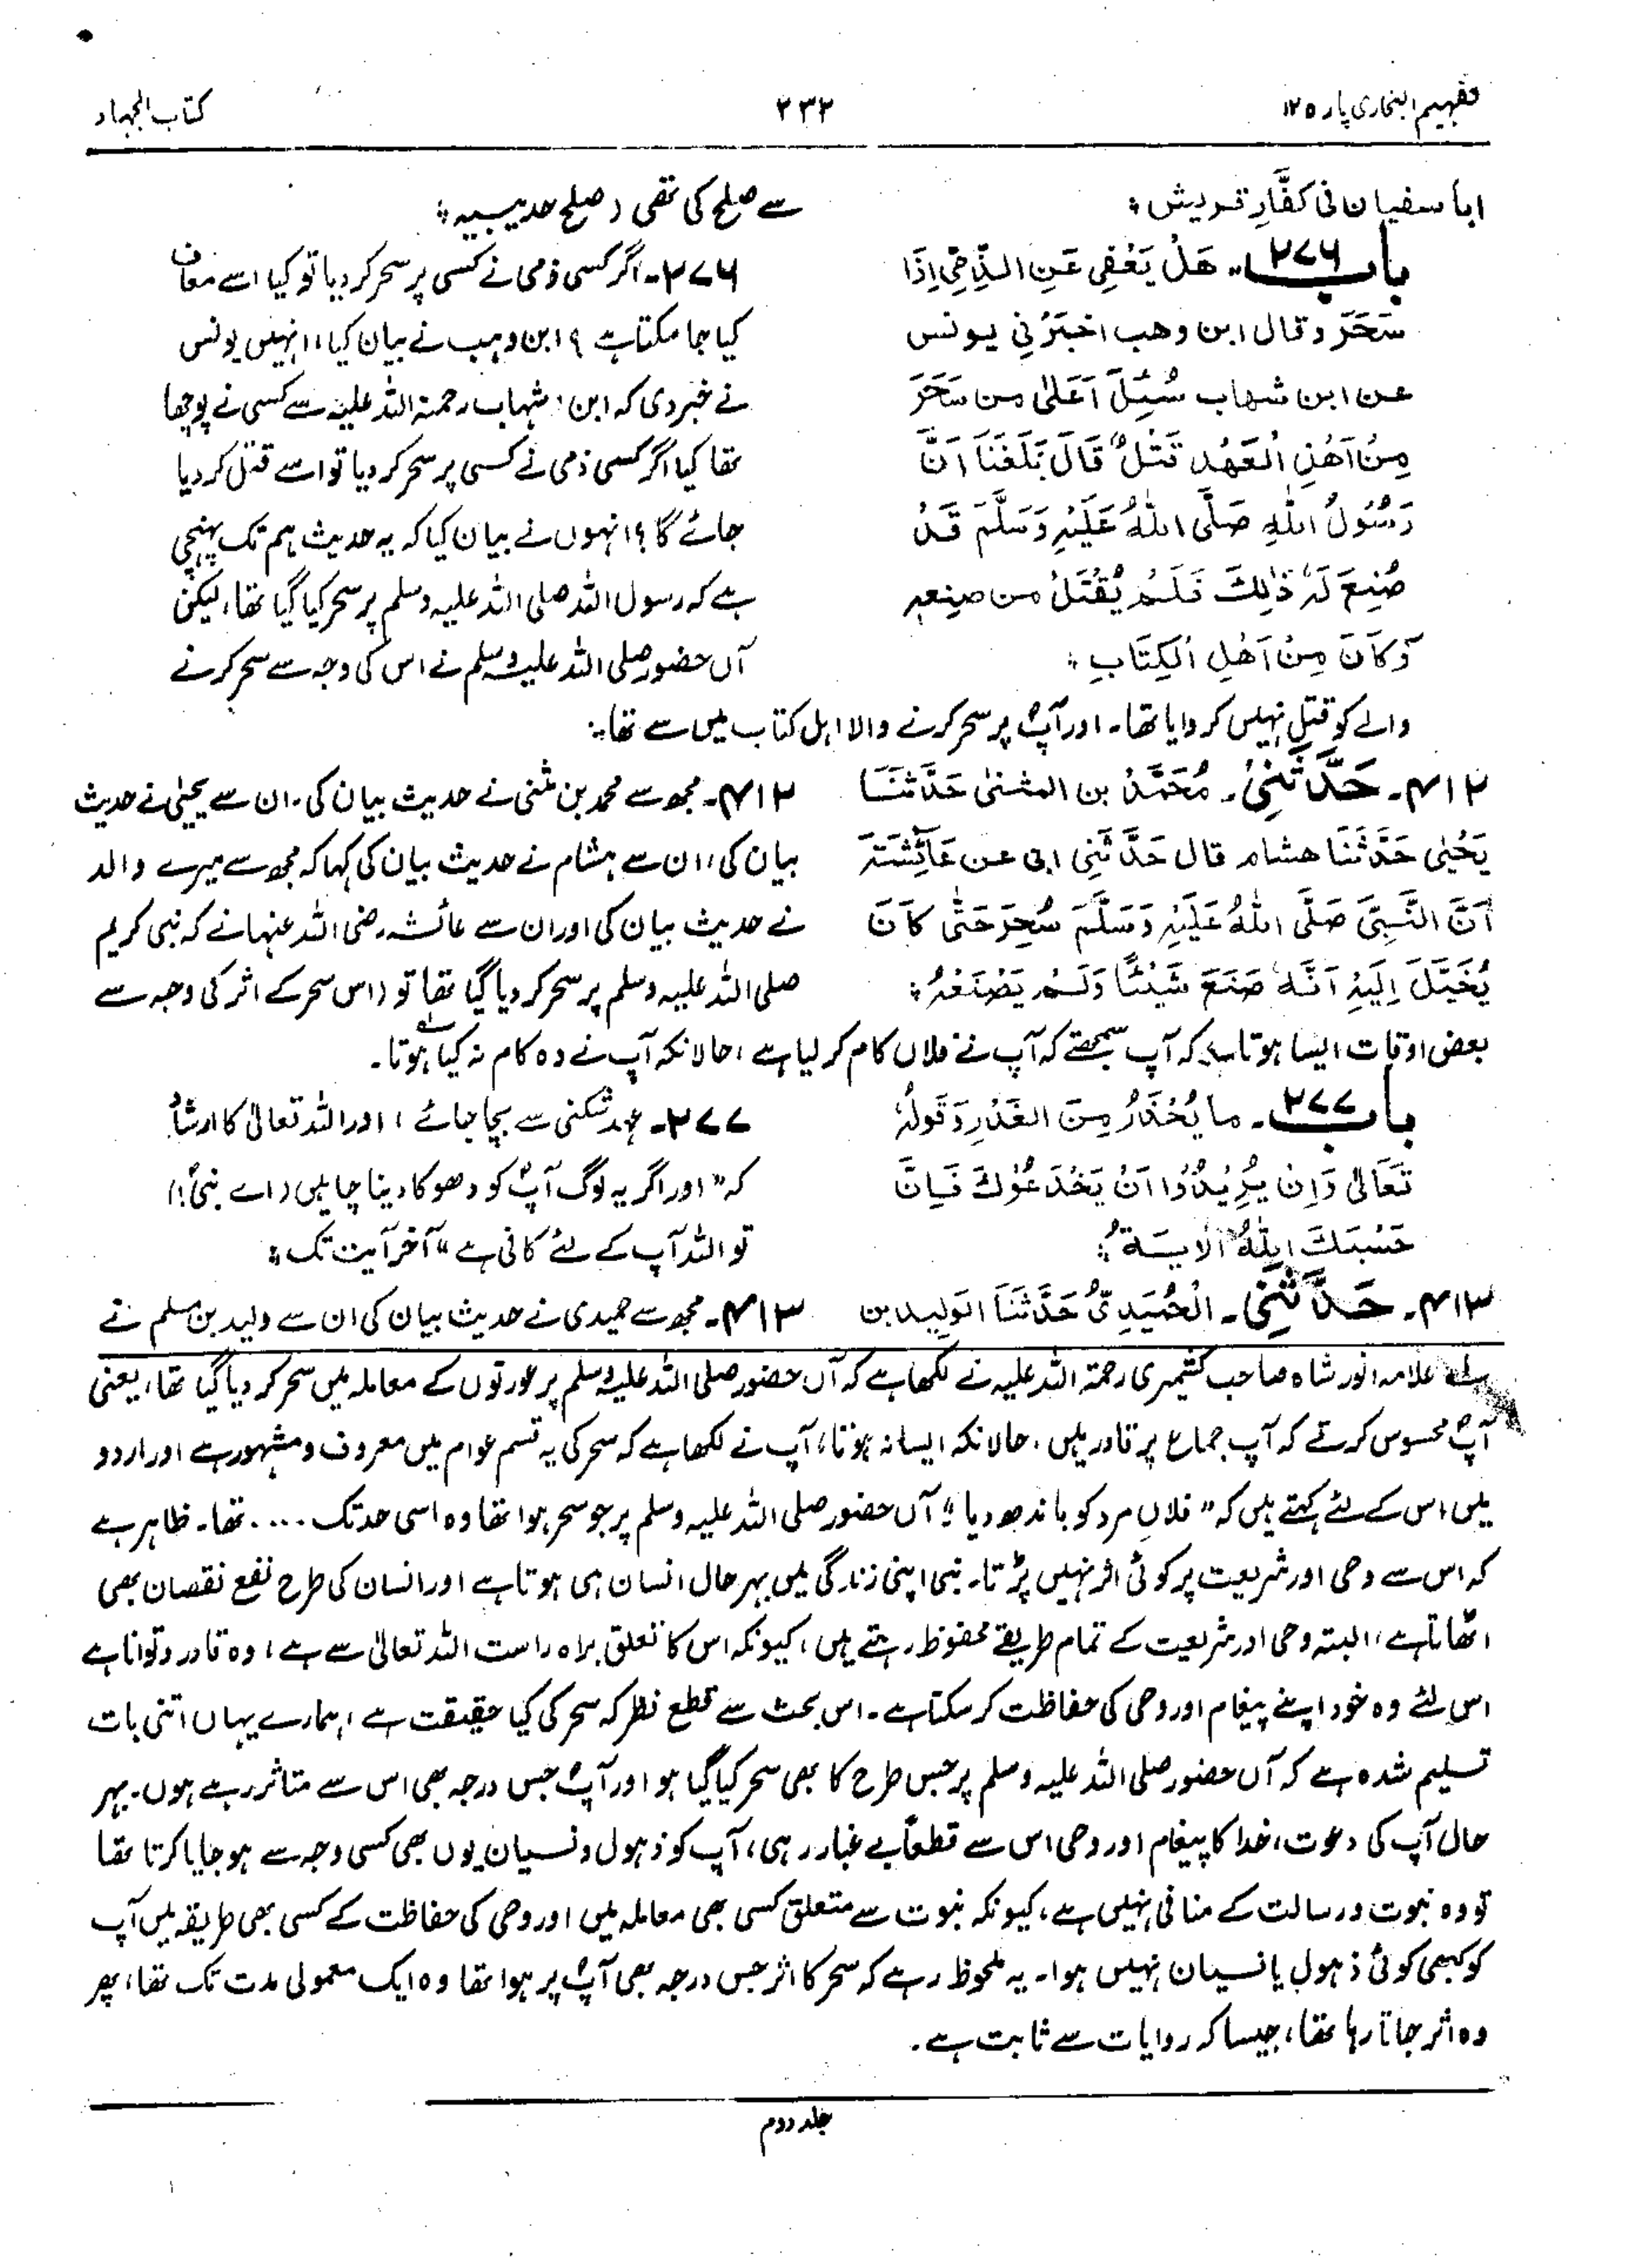 تفہیم البخاری پارہ ۱۲
۲۳۲
کتاب الجہاد
اباسفیان فی کفَّارِ قریش ؛
باب ۲۷۶۔ هَلْ یَعْفِی عَنِ الذِّمِّیِّ اِذَا
سَحَرَ وقال ابن وهب اخبَرَنِی یونس
عن ابن شهاب سُئِلَ اَعَلیٰ من سَحَرَ
مِنْ اَهْلِ الْعَهْدِ قَتْلٌ قَالَ بَلَغَنَا اَنَّ
رَسُوْلَ اللهِ صَلَّی اللهُ عَلَیْهِ وَسَلَّمَ قَدْ
صُنِعَ لَهٗ ذٰلِكَ فَلَمْ یُقْتَلْ من صنعه
وَکَانَ مِنْ اَهْلِ الْکِتَابِ ؛
سے صلح کی تھی (صلح حدیبیہ ؛
۲۷۶۔ اگر کسی ذمی نے کسی پر سحر کر دیا تو کیا اسے معاف
کیا جا سکتا ہے ؟ ابن وہب نے بیان کیا، انہیں یونس
نے خبر دی کہ ابن شہاب رحمۃ اللہ علیہ سے کسی نے پوچھا
تھا کیا اگر کسی ذمی نے کسی پر سحر کر دیا تو اسے قتل کر دیا
جائے گا ؟ انہوں نے بیان کیا کہ یہ حدیث ہم تک پہنچی
ہے کہ رسول اللہ صلی اللہ علیہ وسلم پر سحر کیا گیا تھا، لیکن
آں حضور صلی اللہ علیہ وسلم نے اس کی وجہ سے سحر کرنے
والے کو قتل نہیں کر دایا تھا۔ اور آپؐ پر سحر کرنے والا اہل کتاب میں سے تھا ؛
۴۱۲۔ حَدَّثَنِیْ۔ مُحَمَّدُ بن المثنیٰ حَدَّثَنَا
یَحْیٰی حَدَّثَنَا هشام قال حَدَّثَنِی ابی عن عَائِشَةَ
اَنَّ النَّبِیَّ صَلَّی اللهُ عَلَیْهِ وَسَلَّمَ سُحِرَ حَتّٰی کَانَ
یُخَیَّلَ اِلَیْهِ اَنَّهٗ صَنَعَ شَیْئًا وَلَمْ یَصْنَعْهُ ؛
۴۱۲۔ مجھ سے محمد بن مثنی نے حدیث بیان کی۔ ان سے یحییٰ نے حدیث
بیان کی، ان سے ہشام نے حدیث بیان کی کہا کہ مجھ سے میرے والد
نے حدیث بیان کی اور ان سے عائشہ رضی اللہ عنہا نے کہ نبی کریم
صلی اللہ علیہ وسلم پر سحر کر دیا گیا تھا تو (اس سحر کے اثر کی وجہ سے
بعض اوقات ایسا ہوتا کہ آپ سمجھتے کہ آپ نے فلاں کام کر لیا ہے، حالانکہ آپ نے وہ کام نہ کیا ہوتا۔
باب ۲۷۷۔ ما یُحْذَرُ مِنَ الغَدْرِ وَقَولُهٗ
تَعَالیٰ وَاِنْ یُرِیْدُوْا اَنْ یَخْدَعُوْكَ فَاِنَّ
حَسْبَكَ اللهُ الْاٰیَةُ ؛
۲۷۷۔ عہد شکنی سے بچا جائے، اور اللہ تعالیٰ کا ارشاد
کہ ”اور اگر یہ لوگ آپؐ کو دھوکا دینا چاہیں (اے نبیؐ!)
تو اللہ آپ کے لئے کافی ہے“ آخر آیت تک ؛
۴۱۳۔ حَدَّثَنِیْ۔ الْحُمَیْدِیُّ حَدَّثَنَا الوَلِید بن
۴۱۳۔ مجھ سے حمیدی نے حدیث بیان کی ان سے ولید بن مسلم نے
علامہ انور شاہ صاحب کشمیری رحمۃ اللہ علیہ نے لکھا ہے کہ آں حضور صلی اللہ علیہ وسلم پر عورتوں کے معاملہ میں سحر کر دیا گیا تھا، یعنی
آپؐ محسوس کرتے کہ آپ جماع پر قادر ہیں، حالانکہ ایسا نہ ہوتا، آپ نے لکھا ہے کہ سحر کی یہ قسم عوام میں معروف و مشہور ہے اور اردو
میں اس کے لئے کہتے ہیں کہ ”فلاں مرد کو باندھ دیا“ آں حضور صلی اللہ علیہ وسلم پر جو سحر ہوا تھا وہ اسی حد تک .... تھا۔ ظاہر ہے
کہ اس سے وحی اور شریعت پر کوئی اثر نہیں پڑتا۔ نبی اپنی زندگی میں بہر حال انسان ہی ہوتا ہے اور انسان کی طرح نفع نقصان بھی
اٹھاتا ہے، البتہ وحی اور شریعت کے تمام طریقے محفوظ رہتے ہیں، کیونکہ اس کا تعلق براہ راست اللہ تعالیٰ سے ہے، وہ قادر و توانا ہے
اس لئے وہ خود اپنے پیغام اور وحی کی حفاظت کر سکتا ہے۔ اس بحث سے قطع نظر کہ سحر کی کیا حقیقت ہے، ہمارے یہاں اتنی بات
تسلیم شدہ ہے کہ آں حضور صلی اللہ علیہ وسلم پر جس طرح کا بھی سحر کیا گیا ہو اور آپؐ جس درجہ بھی اس سے متاثر رہے ہوں۔ بہر
حال آپ کی دعوت، خدا کا پیغام اور وحی اس سے قطعاً بے غبار رہی، آپ کو ذہول و نسیان یوں بھی کسی وجہ سے ہو جایا کرتا تھا
تو وہ نبوت و رسالت کے منافی نہیں ہے، کیونکہ نبوت سے متعلق کسی بھی معاملہ میں اور وحی کی حفاظت کے کسی بھی طریقہ میں آپ
کو کبھی کوئی ذہول یا نسیان نہیں ہوا۔ یہ ملحوظ رہے کہ سحر کا اثر جس درجہ بھی آپؐ پر ہوا تھا وہ ایک معمولی مدت تک تھا، پھر
وہ اثر جاتا رہا تھا، جیسا کہ روایات سے ثابت ہے۔
جلد دوم